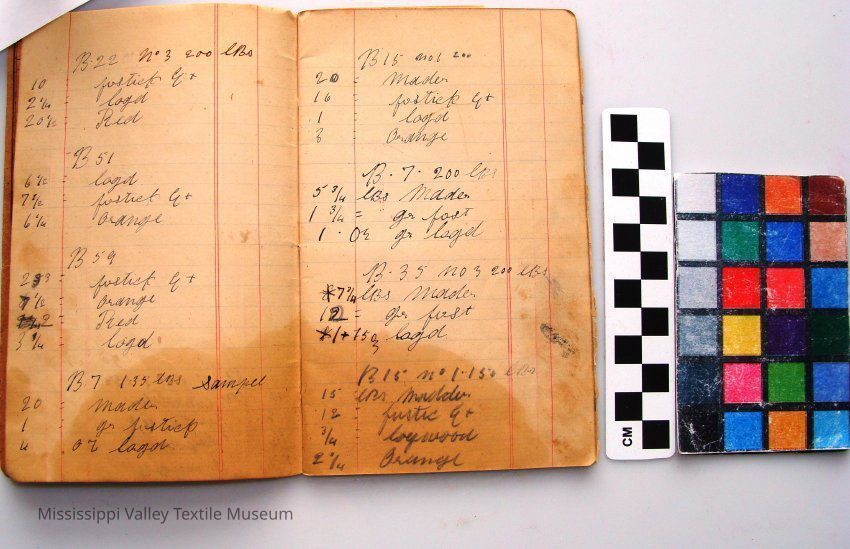 B-22 No 3 200 lBs
10 fustick Ex
2 1/4 = logd
20 1/2 = Red
B 51
6 1/2 = logd
7 1/2 = fustick Ex
6 1/4 = orange
B 59
fustick Ex
orange
Red
3 1/4 logd
B 7 135 lBs Sampel
20 = mader
1 gr fustick
4 oz logd
B 15 no 1 200
20 = mader
16 = fustick Ex
1 logd
3 orange
B-7-200 lBs
5 3/4 lBs Mader
1 3/4 = gr fust
1 - oz gr logd
B-35 no 3 200 lBs
7 3/4 lBs Mader
12 = gr fust
logd
B 15 no 1-150 lBs
15 lBs Madder
12 = fustic Ex
3/4 logwood
2 1/4 Orange
CM
Mississippi Valley Textile Museum